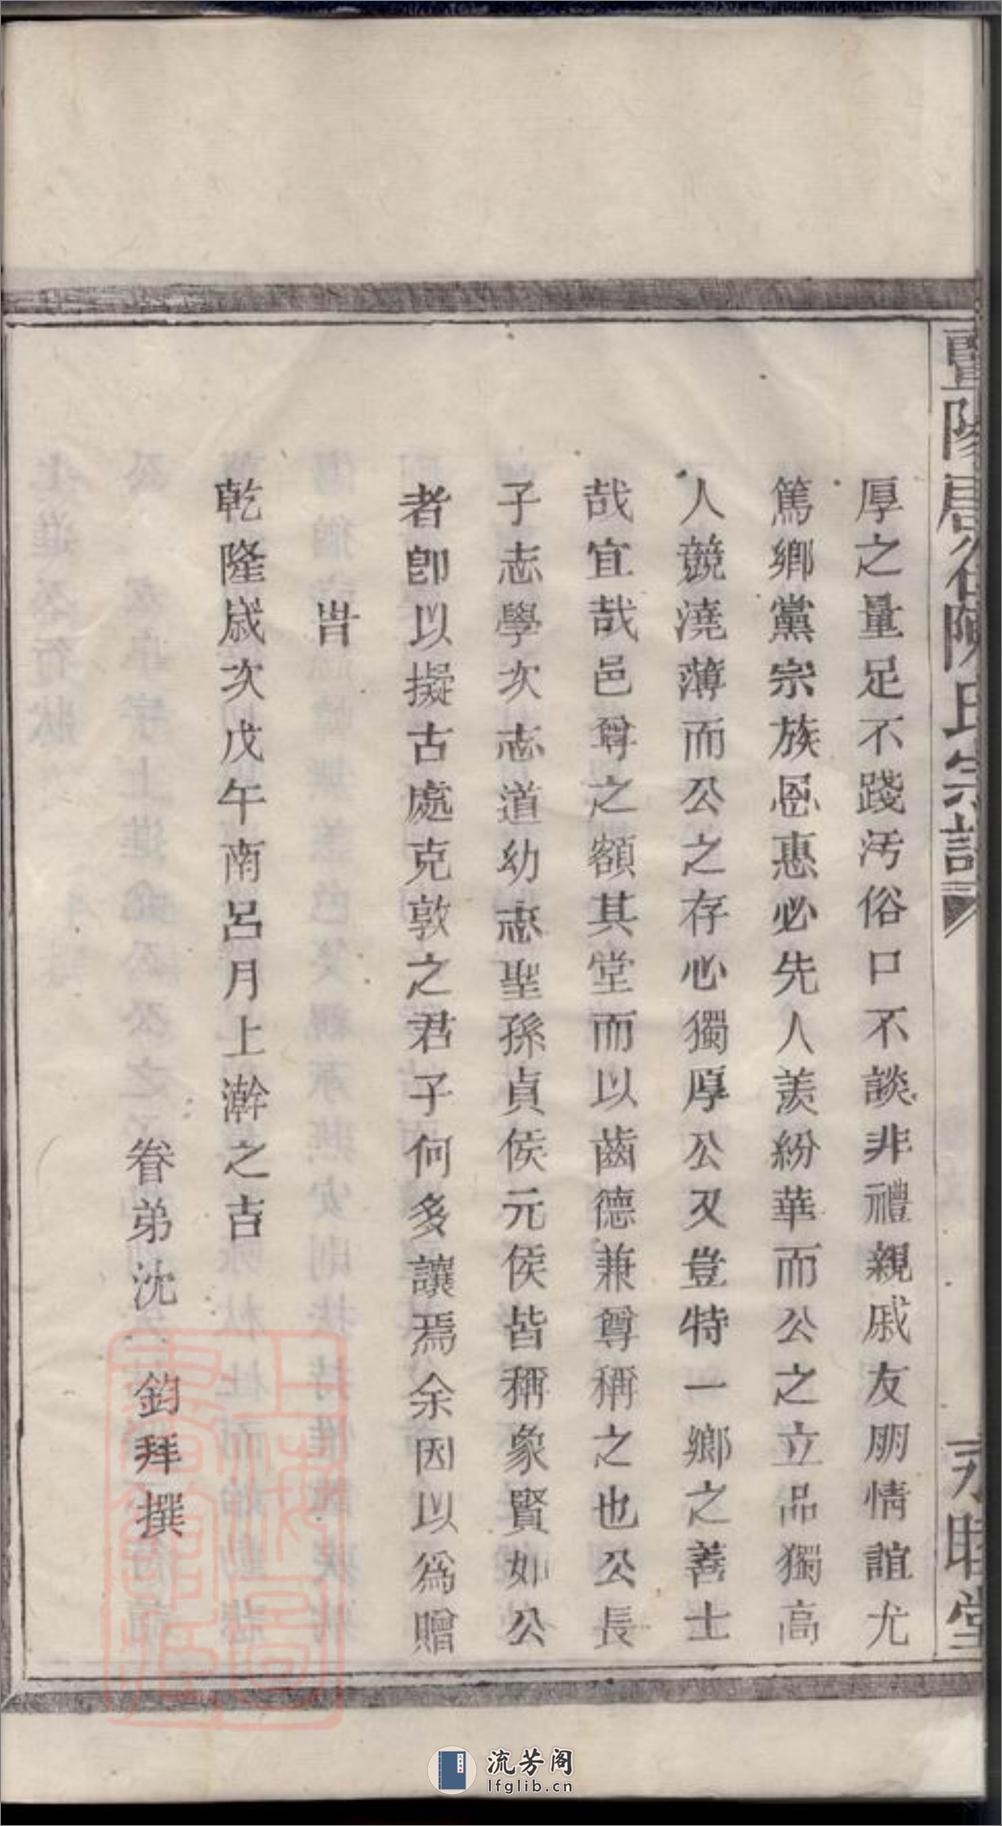 暨陽唐谷陳氏宗譜
永睦堂
厚之量足不踐汚俗口不談非禮親戚友朋情誼尤
篤鄉黨宗族恩惠必先人羨紛華而公之立品獨高
人競澆薄而公之存心獨厚公又豈特一鄉之善士
哉宜哉邑尊之額其堂而以齒德兼尊稱之也公長
子志學次志道幼志聖孫貞侯元侯皆稱象賢如公
者卽以擬古處克敦之君子何多讓焉余因以爲贈
旹
乾隆歲次戊午南呂月上澣之吉
眷弟沈 鈞拜撰
上海圖書館藏
流芳阁
lfglib.cn